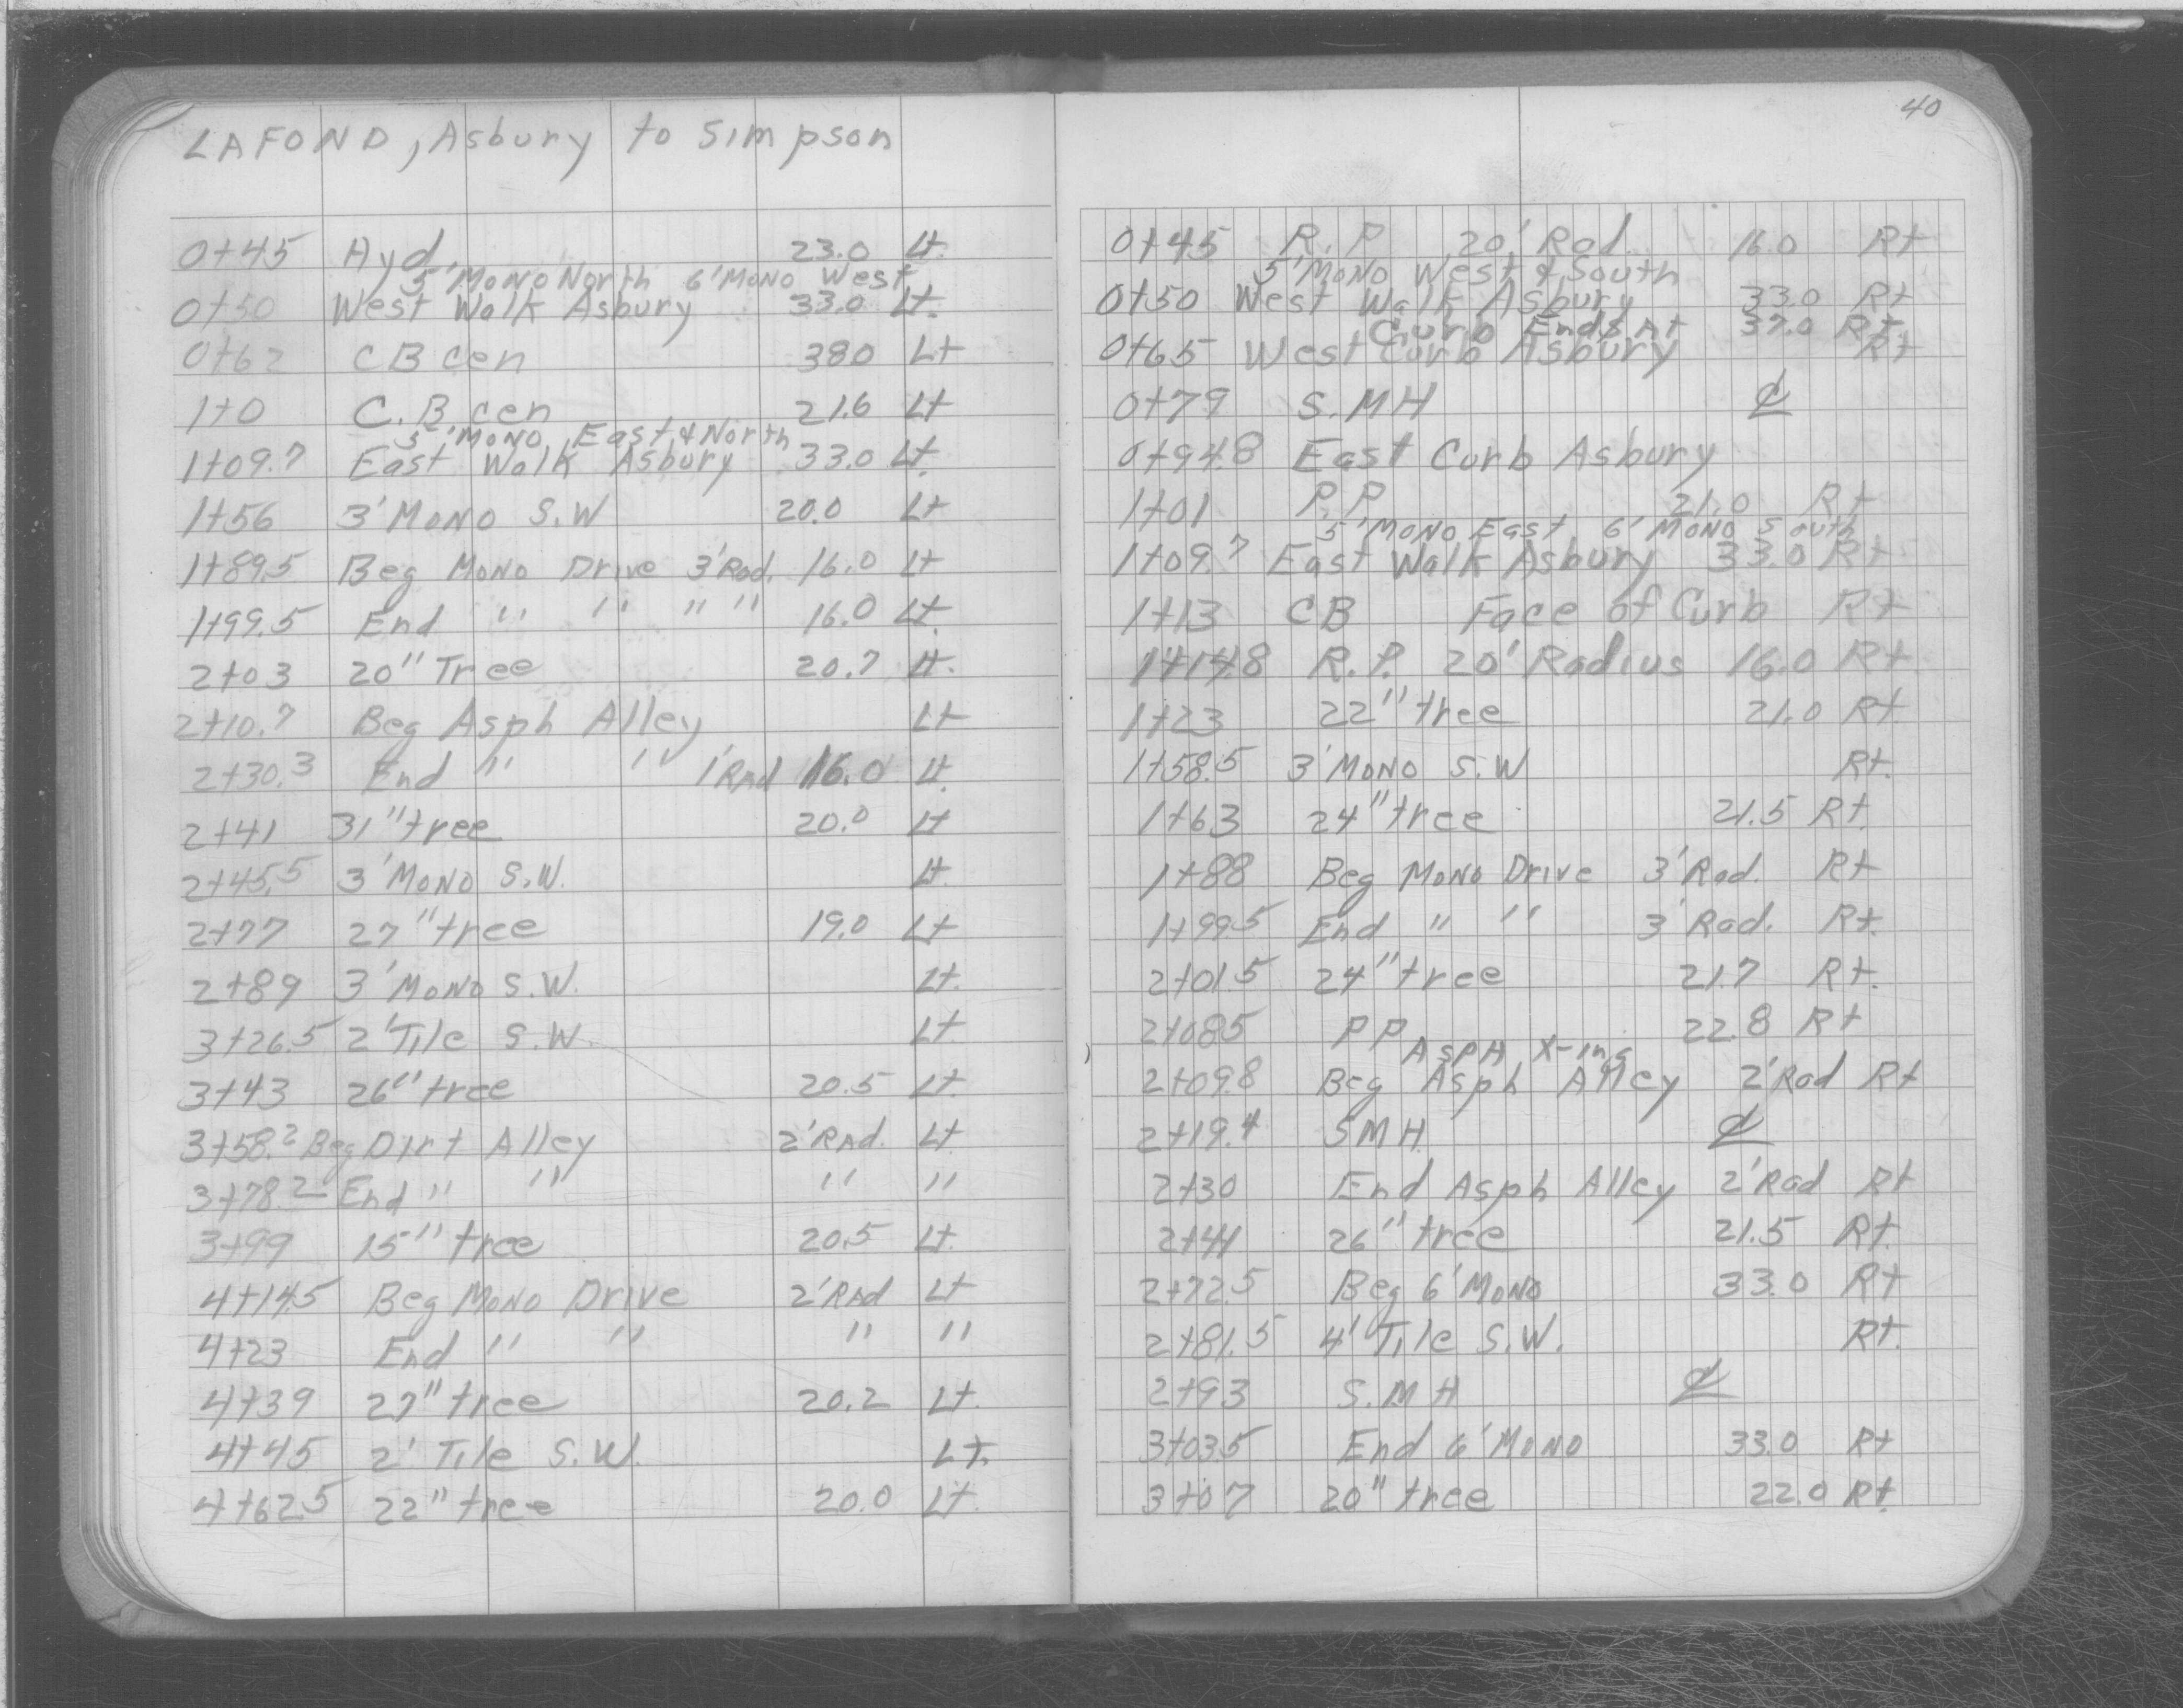 LAFOND, Asbury to Simpson
0+45 Hyd. 23.0 Lt.
5' MONO North 6' MONO West
0+50 West Walk Asbury 33.0 Lt.
0+62 CB cen 38.0 Lt
1+0 C.B cen 21.6 Lt
5' MONO East & North
1+09.7 East Walk Asbury 33.0 Lt.
1+56 3' MONO S.W 20.0 Lt
1+89.5 Beg MONO Drive 3' Rad. 16.0 Lt
1+99.5 End " " " " 16.0 Lt.
2+03 20" Tree 20.7 Lt.
2+10.7 Beg Asph Alley Lt
2+30.3 End " " 1' RAd 16.0 Lt.
2+41 31" tree 20.0 Lt
2+45.5 3' MONO S.W. Lt.
2+77 27" tree 19.0 Lt
2+89 3' MONO S.W. Lt.
3+26.5 2' Tile S.W. Lt.
3+43 26" tree 20.5 Lt.
3+58.2 Beg Dirt Alley 2' RAd. Lt.
3+78.2 End " " " "
3+99 15" tree 20.5 Lt.
4+14.5 Beg MONO Drive 2' RAd Lt
4+23 End " " " "
4+39 27" tree 20.2 Lt.
4+45 2' Tile S.W. Lt.
4+62.5 22" tree 20.0 Lt.
40
0+45 R.P 20' Rad. 16.0 Rt
5' MONO West & South
0+50 West Walk Asbury 33.0 Rt
Curb Ends At 37.0 Rt.
0+65 West Curb Asbury Rt
0+79 S.MH ℄
0+94.8 East Curb Asbury
1+01 P.P 21.0 Rt
5' MONO East 6' MONO South
1+09.7 East Walk Asbury 33.0 Rt
1+13 CB Face of Curb Rt
1+14.8 R.P. 20' Radius 16.0 Rt
1+23 22" tree 21.0 Rt.
1+58.5 3' MONO S.W Rt.
1+63 24" tree 21.5 Rt.
1+88 Beg MONO Drive 3' Rad. Rt
1+99.5 End " " 3' Rad. Rt.
2+01.5 24" tree 21.7 Rt.
2+08.5 PP 22.8 Rt
ASPH X-ing
2+09.8 Beg Asph Alley 2' Rad Rt
2+19.4 SMH ℄
2+30 End Asph Alley 2' Rad Rt
2+41 26" tree 21.5 Rt.
2+72.5 Beg 6' MONO 33.0 Rt
2+81.5 4' Tile S.W. Rt.
2+93 S.MH ℄
3+03.5 End 6' MONO 33.0 Rt
3+07 20" tree 22.0 Rt.